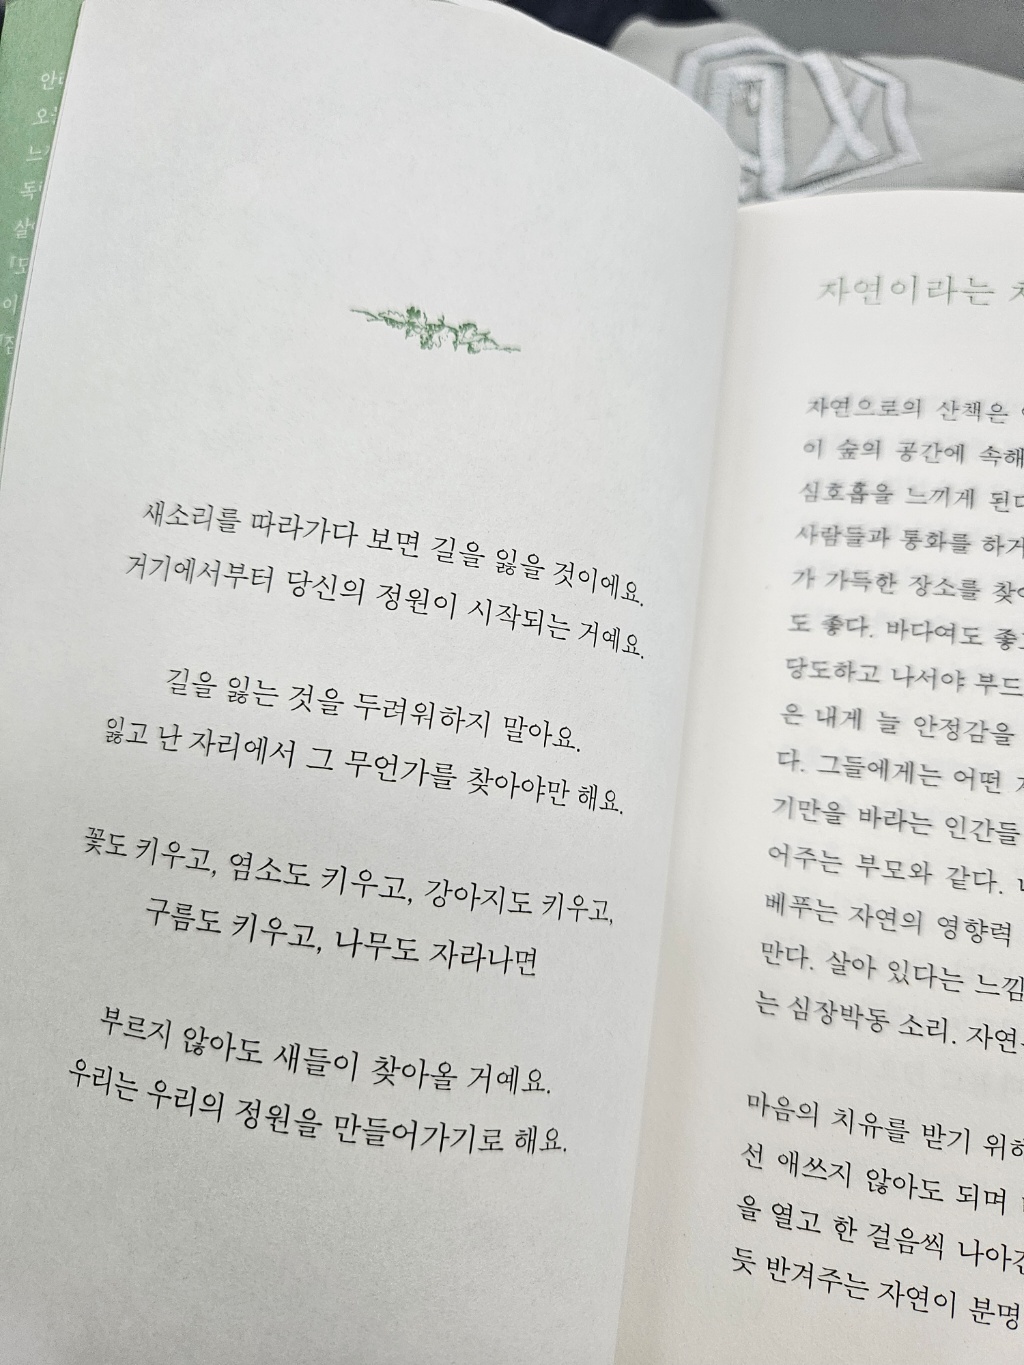 새소리를 따라가다 보면 길을 잃을 것이에요.
거기에서부터 당신의 정원이 시작되는 거예요.
길을 잃는 것을 두려워하지 말아요.
잃고 난 자리에서 그 무언가를 찾아야만 해요.
꽃도 키우고, 염소도 키우고, 강아지도 키우고,
구름도 키우고, 나무도 자라나면
부르지 않아도 새들이 찾아올 거예요.
우리는 우리의 정원을 만들어가기로 해요.
자연이라는
자연으로의 산책은
이 숲의 공간에 속해
심호흡을 느끼게 된다
사람들과 통화를 하거
가 가득한 장소를 찾아
도 좋다. 바다여도 좋고
당도하고 나서야 부드
은 내게 늘 안정감을
다. 그들에게는 어떤
기만을 바라는 인간들
어주는 부모와 같다.
베푸는 자연의 영향력
만다. 살아 있다는 느낌
는 심장박동 소리. 자연
마음의 치유를 받기 위해
선 애쓰지 않아도 되며
을 열고 한 걸음씩 나아간
듯 반겨주는 자연이 분명